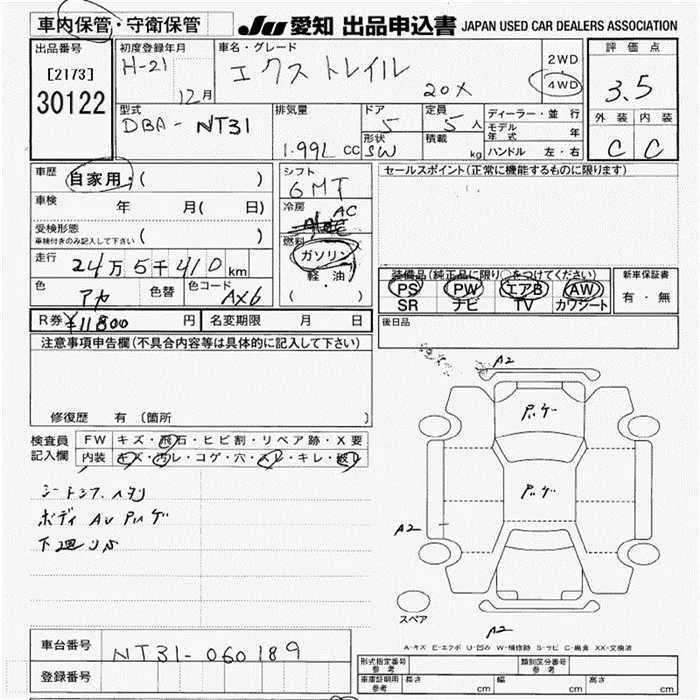 車内保管・守衛保管 JU 愛知 出品申込書 JAPAN USED CAR DEALERS ASSOCIATION
出品番号 初度登録年月 車名・グレード 評価点
[2173] H-21 エクストレイル 2WD
30122 12月 20X 4WD 3.5
型式 排気量 ドア 定員 ディーラー・並行 外装 内装
DBA-NT31 5 5人 モデル年式 年
1.99L CC 形状 SW 積載 kg ハンドル 左・右 C C
車歴 自家用・( ) シフト セールスポイント(正常に機能するものに限ります)
6MT
車検 年 月( 日) 冷房 AC
受検形態
車検付きのみ記入して下さい ( ) 燃料
走行 24万5千410km ガソリン
軽油 装備品(純正品に限り○をつけてください) 新車保証書
色 アカ 色替 色コード AX6 ( ・ ) PS PW エアB AW 有・無
SR ナビ TV カワシート
R券 ¥11800 円 名変期限 月 日 後日品
注意事項申告欄(不具合内容等は具体的に記入して下さい)
A2
修復歴 有(箇所
検査員 FW キズ・飛石・ヒビ割・リペア跡・X要
記入欄 内装 キズ・汚レ・コゲ・穴・スレ・キレ・破レ
ボディ
下廻り
A2
スペア
A2
A-キズ E-エクボ U-凹み W-補修跡 S-サビ C-腐食 XX-交換済
車台番号 NT31-060189
型式指定番号 参考 類別区分番号 参考
登録番号 車庫証明用 参考 長さ cm 幅 cm 高さ cm